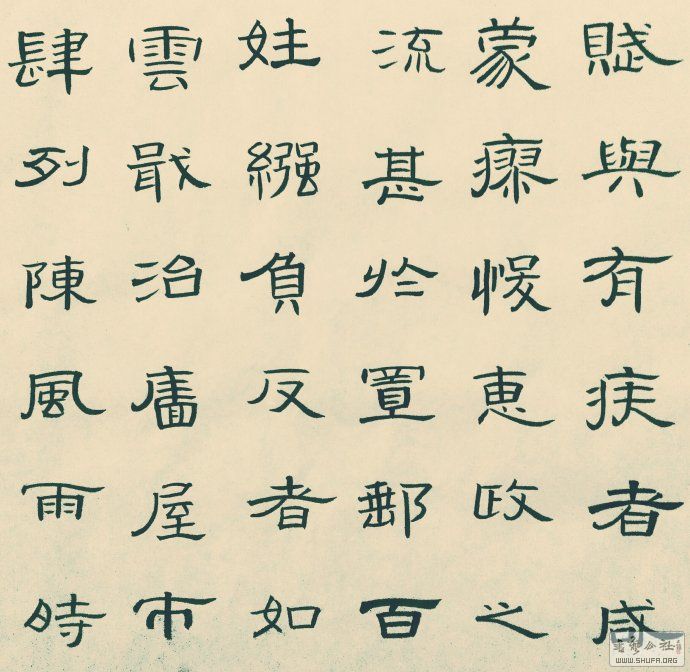 賦與有疾者咸
蒙瘳悛惠政之
流甚於置郵百
姓繦負反者如
雲戢治廧屋市
肆列陳風雨時
WWW.SHUFA.ORG